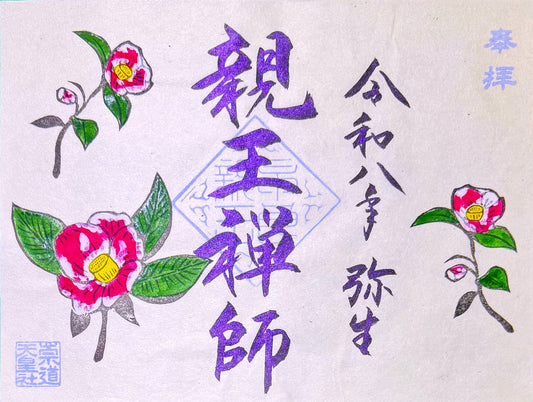 奉拝
令和八年 弥生
親王禅師
崇道
天皇社